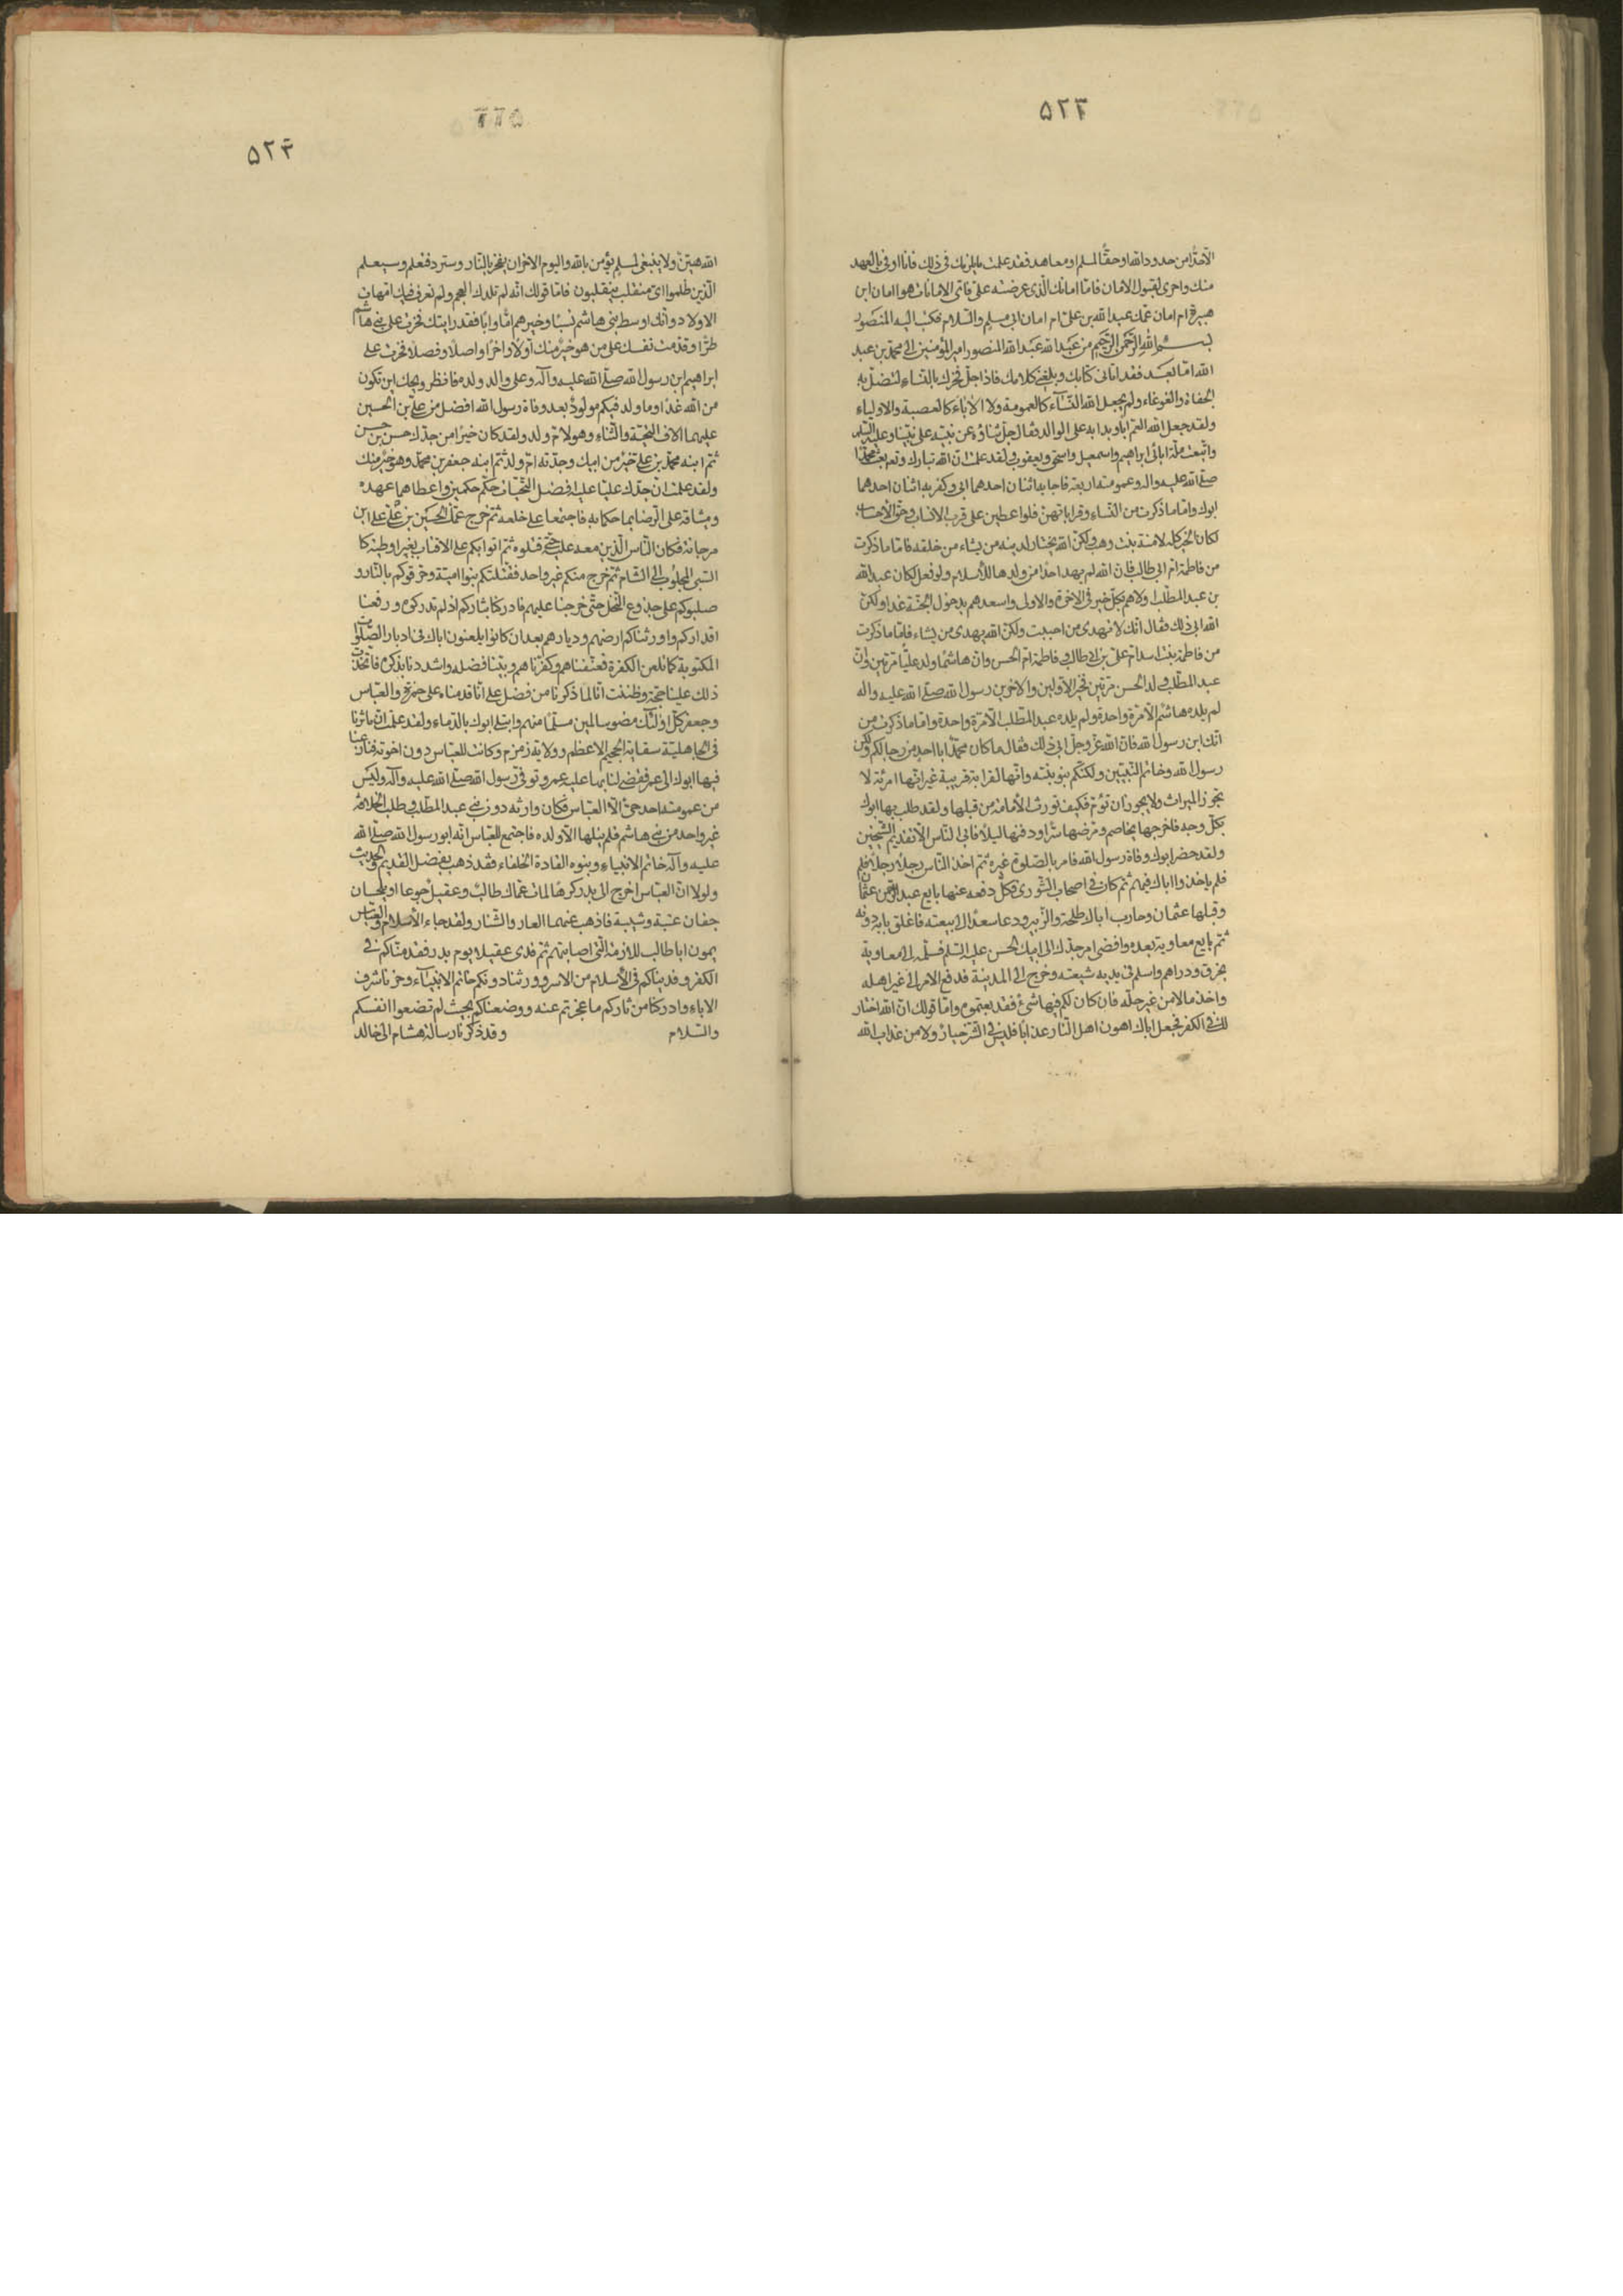 ۵۲۳
الّا حدًّا من حدود الله او حقًّا لمسلم او معاهد فقد علمت ما يلزمك فى ذلك فانا اوفى بالعهد
منك واحرى لقبول الامان فامّا امانك الّذى عرضته علىّ فاىّ الامانات هو امان ابن
هبيرة ام امان عمّك عبد الله بن على ام امان ابى مسلم والسّلام فكتب اليه المنصور
بسم الله الرّحمن الرّحيم من عبد الله عبد الله المنصور امير المؤمنين الى محمّد بن عبد
الله امّا بعد فقد اتانى كتابك وبلغنى كلامك فاذا جلّ فخرك بالنّساء لتضلّ به
الجفاة والغوغاء ولم يجعل الله النّساء كالعمومة ولا الآباء كالعصبة والاولياء
ولقد جعل الله العمّ ابا وبدا به على الوالد فقال جلّ ثناؤه عن نبيّه على نبيّنا وعليه السّلم
واتّبعت ملّة ابائى ابراهيم واسمعيل واسحق ويعقوب ولقد علمت انّ الله تبارك وتع بعث محمّدا
صلّى الله عليه واله وعمومته اربعة فاجابه اثنان احدهما ابى وكفر به اثنان احدهما
ابوك وامّا ما ذكرت من النّساء وقراباتهنّ فلو اعطين على قرب الانساب وحقّ الاحساب
لكان الخير كلّه لامنة بنت وهب ولكنّ الله يختار لدينه من يشاء من خلقه فامّا ما ذكرت
من فاطمة امّ ابى طالب فانّ الله لم يهد احدًا من ولدها للاسلام ولو فعل لكان عبد الله
بن عبد المطّلب اولاهم بكلّ خير فى الاخرة والاولى واسعدهم بدخول الجنّة غدا ولكنّ
الله ابى ذلك فقال انّك لا تهدى من احببت ولكنّ الله يهدى من يشاء فامّا ما ذكرت
من فاطمة بنت اسد امّ علىّ بن ابى طالب وفاطمة امّ الحسن وانّ هاشمًا ولد عليّا مرّتين وانّ
عبد المطّلب ولد الحسن مرّتين فخير الاوّلين والاخرين رسول الله صلّى الله عليه واله
لم يلده هاشم الّا مرّة واحدة ولم يلده عبد المطّلب الّا مرّة واحدة وامّا ما ذكرت من
انّك ابن رسول الله فانّ الله عزّ وجلّ ابى ذلك فقال ما كان محمّد ابا احد من رجالكم ولكن
رسول الله وخاتم النّبيّين ولكنّكم بنو بنته وانّها لقرابة قريبة غير انّها امرئة لا
تجوز الميراث ولا يجوز ان تؤمّ فكيف تورث الامامة من قبلها ولقد طلب بها ابوك
بكلّ وجه فاخرجها تخاصم ومرّضها سرًّا ودفنها ليلًا فابى النّاس الّا تقديم الشّيخين
ولقد حضر ابوك وفاة رسول الله فامر بالصّلوة غيره ثمّ اخذ النّاس رجلًا رجلًا فلم
فلم ياخذوا اباك فيهم ثمّ كان فى اصحاب الشّورى فكلّ دفعه عنها بايع عبد الرّحمن عثمان
وقبلها عثمان وحارب اباك طلحة والزّبير ودعا سعدًا الى بيعته فاغلق بابه دونه
ثمّ بايع معاوية بعده وافضى امر جدّك الى ابيك الحسن عليه السّلم فسلّمه الى معاوية
بخرق ودراهم واسلم فى يديه شيعته وخرج الى المدينة فدفع الامر الى غير اهله
واخذ مالا من غير حلّه فان كان لكم فيها شئ فقد بعتموه وامّا قولك انّ الله اختار
لك فى الكفر فجعل اباك اهون اهل النّار عذابًا فليس فى الشّر خيار ولا من عذاب الله
۵۲۴
الله هيّن ولا ينبغى لمسلم يؤمن بالله واليوم الاخر ان يفخر بالنّار وسترد فتعلم وسيعلم
الّذين ظلموا اىّ منقلب ينقلبون فامّا قولك انّه لم تلدك العجم ولم تعرف فيك امّهات
الاولاد وانّك اوسط بنى هاشم نسبًا وخيرهم امًّا وابًا فقد رايتك فخرت على بنى هاشم
طرًّا وقدّمت نفسك على من هو خير منك اوّلًا واخرًا واصلًا وفصلًا فخرت على
ابراهيم ابن رسول الله صلّى الله عليه وآله وعلى والد ولده فانظر ويحك اين تكون
من الله غدًا وما ولد فيكم مولود بعد وفاة رسول الله افضل من علىّ بن الحسين
عليهما الاف التّحيّة والثّناء وهو لامّ ولد ولقد كان خيرًا من جدّك حسن بن حسن
ثمّ ابنه محمّد بن على خير من ابيك وجدّته امّ ولد ثمّ ابنه جعفر بن محمّد وهو خير منك
ولقد علمت انّ جدّك عليّا عليه افضل التّحيّات حكّم حكمين واعطاهما عهده
وميثاقه على الرّضا بما حكما به فاجتمعا على خلعه ثمّ خرج عمّك الحسين بن علىّ على ابن
مرجانة فكان النّاس الّذين معه عليه حتّى قتلوه ثمّ اتوا بكم على الاقتاب بغير اوطية كا
السّبى المجلوب الى الشّام ثمّ خرج منكم غير واحد فقتلتكم بنو اميّة وحرّقوكم بالنّار و
صلبوكم على جذوع النّخل حتّى خرجنا عليهم فادركنا بثاركم اذ لم تدركوه ورفعنا
اقداركم واورثناكم ارضهم وديارهم بعد ان كانوا يلعنون اباك فى ادبار الصّلوات
المكتوبة كما تلعن الكفرة فعنّفناهم وكفّرناهم وبيّنا فضله واشددنا بذكره فاتّخذت
ذلك علينا حجّة وظننت انّا لما ذكرنا من فضل على انّا قدّمناه على حمزة والعبّاس
وجعفر كلّ اولئك مضوا سالمين مسلّمًا منهم وابتلى ابوك بالدّماء ولقد علمت انّ ماثرنا
فى الجاهليّة سقاية الحجيج الاعظم وولاية زمزم وكانت للعبّاس دون اخوته فنازعنا
فيها ابوك الى عمر فقضى لنا بها عليه عمر وتوفّى رسول الله صلّى الله عليه وآله وليس
من عمومته احد حىّ الّا العبّاس فكان وارثه دون بنى عبد المطّلب وطلب الخلافة
غير واحد من بنى هاشم فلم ينلها الّا ولده فاجتمع للعبّاس انّه ابو رسول الله صلّى الله
عليه وآله خاتم الانبياء وبنوه القادة الخلفاء فقد ذهب بفضل القديم والحديث
ولولا انّ العبّاس اخرج الى بدر كرهًا لمات عمّاك طالب وعقيل جوعا او يلحسان
جفان عتبة وشيبة فاذهب عنهما العار والشّنار ولقد جاء الاسلام والعبّاس
يمون ابا طالب للازمة الّتى اصابتهم ثمّ فدى عقيلا يوم بدر فقد منّاكم فى
الكفر وفديناكم فى الاسلام من الاسر وورثنا دونكم خاتم الانبياء وحزنا شرف
الاباء وادركنا من ثاركم ما عجزتم عنه ووضعناكم بحيث لم تضعوا انفسكم
والسّلام وقد ذكرنا رسالة هشام الى خالد